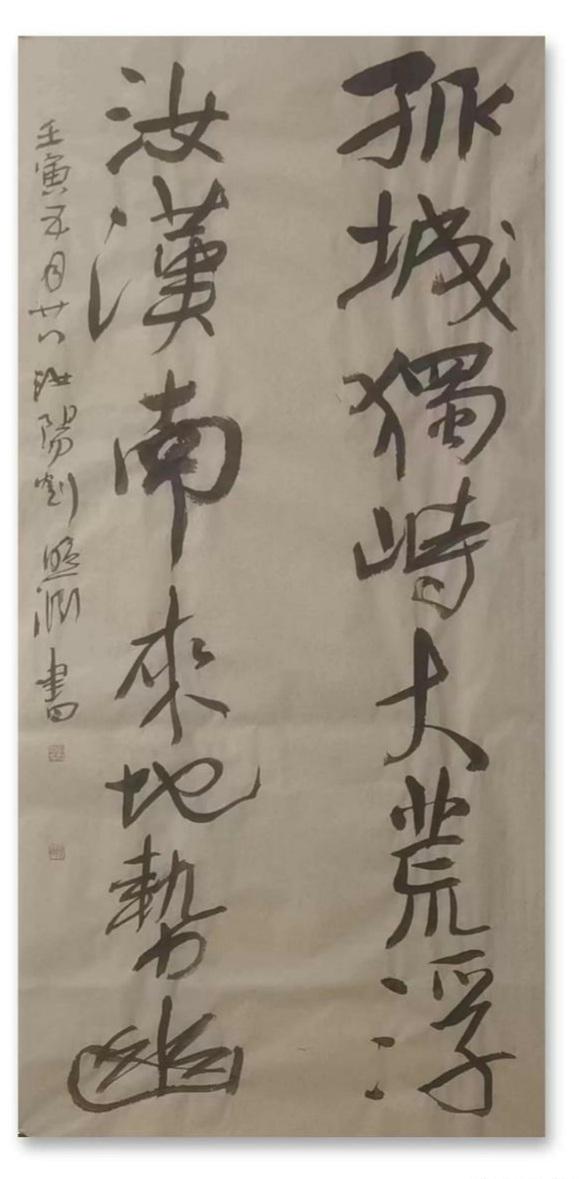 孤城獨峙大荒浮
汝漢南來地勢幽
壬寅五月廿八汝陽劉書